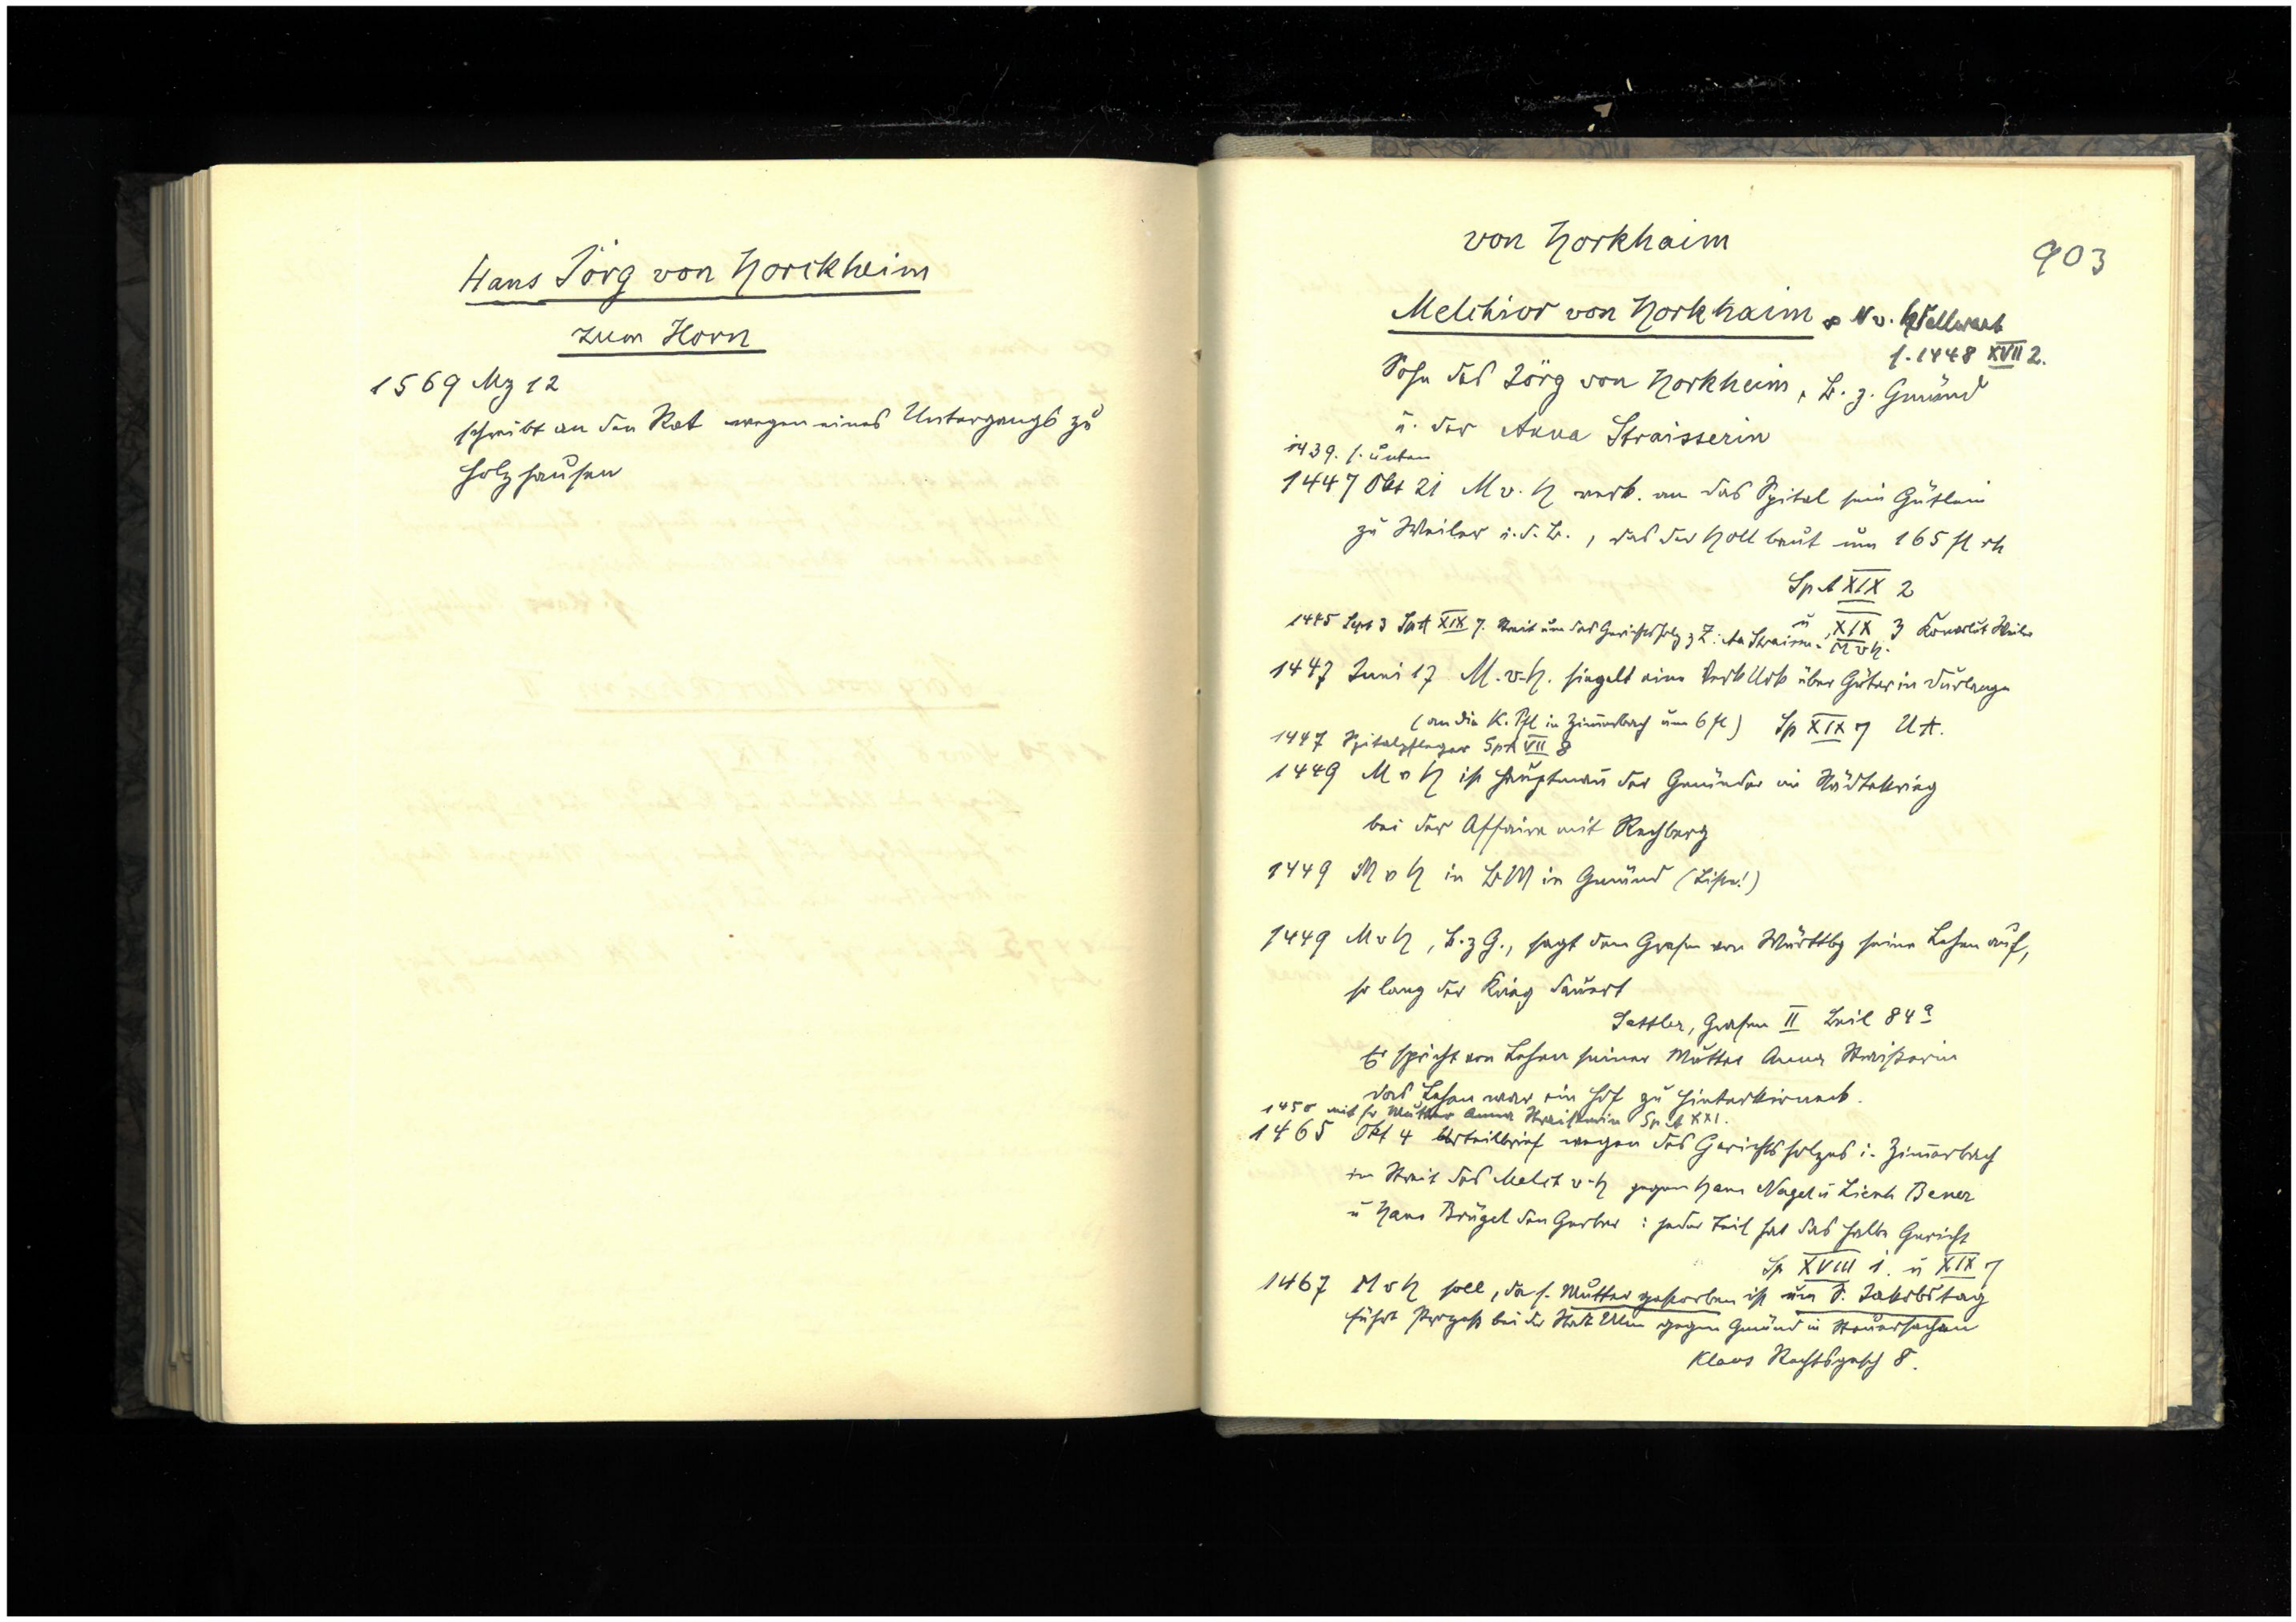 Hans Jörg von Horckheim
zum Horn
1569 Mz 12
schreibt an den Rat wegen eines Untergangs zu
Holzhausen
von Horkhaim
903
Melchior von Horkhaim ∞ N v. Wellwart
s. 1448 XVII 2.
Sohn des Jörg von Horkheim, B. z. Gmünd
u. der Anna Straisserin
1439. s. unten
1447 Okt 21 M v. H verk. an das Spital sein Gütlein
zu Weiler i. d. B., das der Holl baut um 165 fl rh
Sp A XIX 2
u XIX 3 Weiler
1445 Sept 3 Sp A XIX 7. Streit um das Gerichtsholz z Z: An Straisse. u. M v H.
1447 Juni 17 M. v. H. siegelt eine VerkUrk über Güter in Durlange
(an die K. Pfl in Zimerbach um 6 fl) Sp XIX 7 UA.
1447 Spitalpfleger SpA VII 8
1449 M v H ist Hauptman der Gmünder im Städtekrieg
bei der Affaire mit Rechberg
1449 M v H in BM in Gmünd (Liste!)
1449 M v H, B. z G., sagt dem Grafen von Württbg seine Lehen auf,
so lang der Krieg dauert
Sattler, Grafen II Beil 84a
Er spricht von Lehen seiner Mutter Anna Straißerin
das Lehen war ein Hof zu Hinterlintal.
1450 mit sr Mutter Anna Straißerin Sp A XXI.
1465 Okt 4 Urteilbrief wegen des Gerichtsholzes i. Zimerbach
im Streit des Melch v. H gegen Hans Nagel u Lienh Bener
u Hans Brügel den Gerber: jeder Teil hat das halbe Gericht
Sp XVIII 1. u XIX 7
1467 M v H soll, da s. Mutter gestorben ist um S. Jakobstag
führt Prozeß bei der Stadt Ulm gegen Gmünd in Steuersachen
Klaus Rechtsgesch 8.